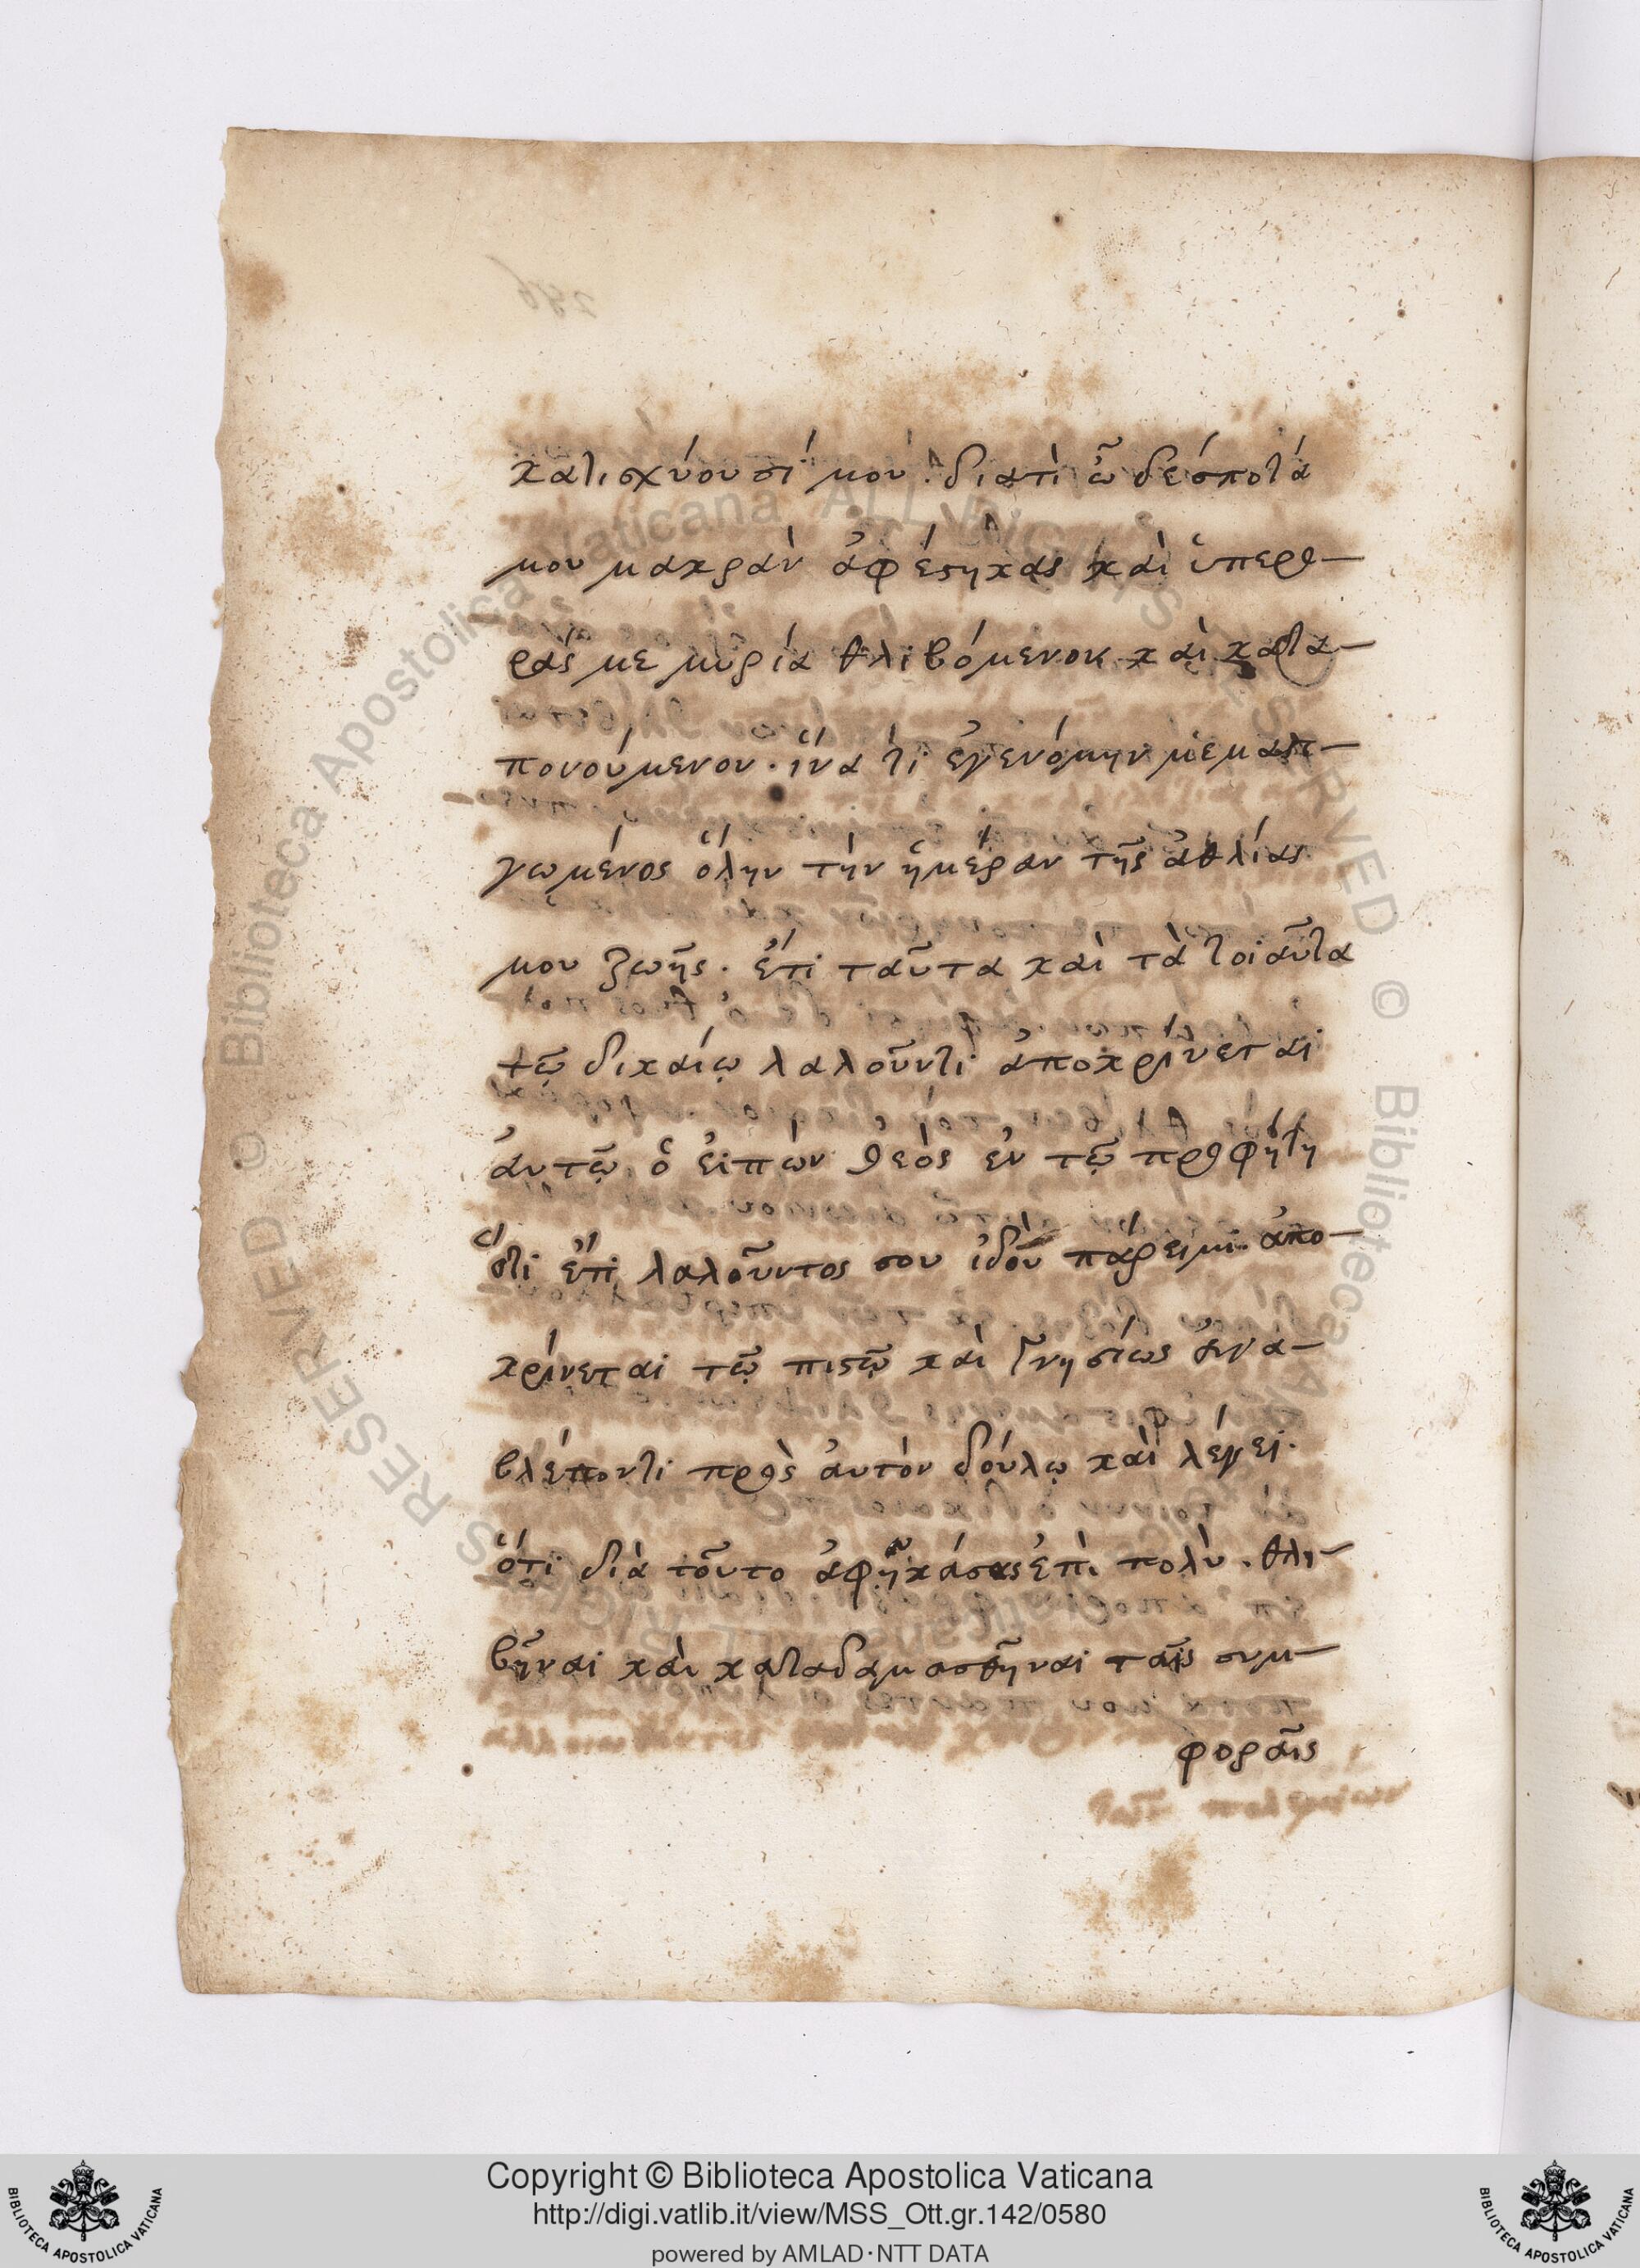 κατισχύουσί μου. διατὶ ὦ δέσποτά
μου μακρὰν ἀφέστηκας καὶ ὑπερο-
ρᾶς με μυρία θλιβόμενον καὶ κατα-
πονούμενον. ἵνα τί ἐγενόμην μεμαστι-
γωμένος ὅλην τὴν ἡμέραν τῆς ἀθλίας
μου ζωῆς. ἔτι ταῦτα καὶ τὰ τοιαῦτα
τῷ δικαίῳ λαλοῦντι ἀποκρίνεται
ἀυτῷ ὁ ἐιπὼν θεὸς ἐν τῷ προφήτῃ
ὅτι ἔτι λαλοῦντος σου ἰδοὺ πάρειμι. ἀπο-
κρίνεται τῷ πιστῷ καὶ γνησίως
βλέποντι πρὸς ἀυτὸν δούλῳ καὶ λέγει.
ὅτι διὰ τοῦτο ἀφῆκά σε ἐπὶ πολὺ. θλι-
βῆναι καὶ καταδαμασθῆναι ταῖς συμ-
φοραῖς
Copyright © Biblioteca Apostolica Vaticana
http://digi.vatlib.it/view/MSS_Ott.gr.142/0580
powered by AMLAD·NTT DATA
BIBLIOTECA APOSTOLICA VATICANA
BIBLIOTECA APOSTOLICA VATICANA